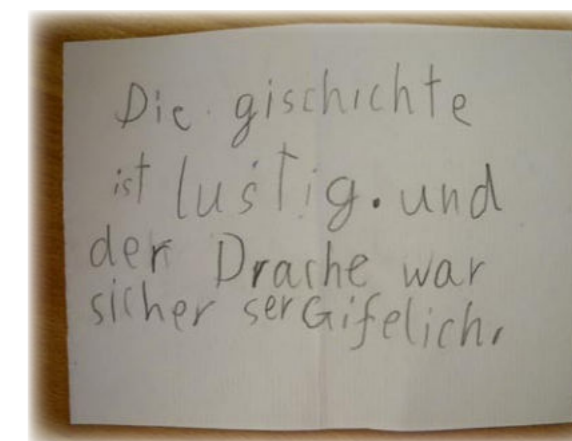 Die gischichte
ist lustig. und
der Drache war
sicher ser Gifelich,